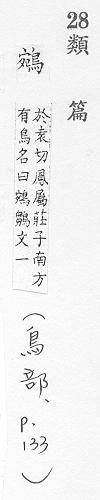 28 類篇
鵷
於袁切鳳屬莊子南方
有鳥名曰鵷鶵文一
（鳥部、p.133）